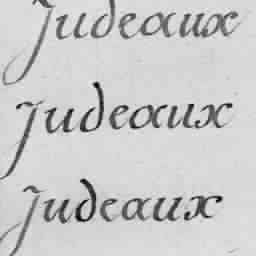 Judeaux
Judeaux
Judeaux